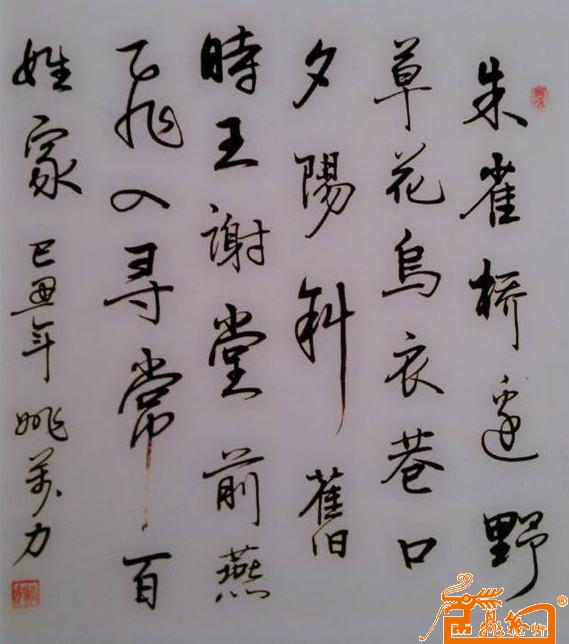 朱雀桥边野
草花乌衣巷口
夕陽斜舊
時王謝堂前燕
飞入寻常百
姓家 己丑年 姚萬力